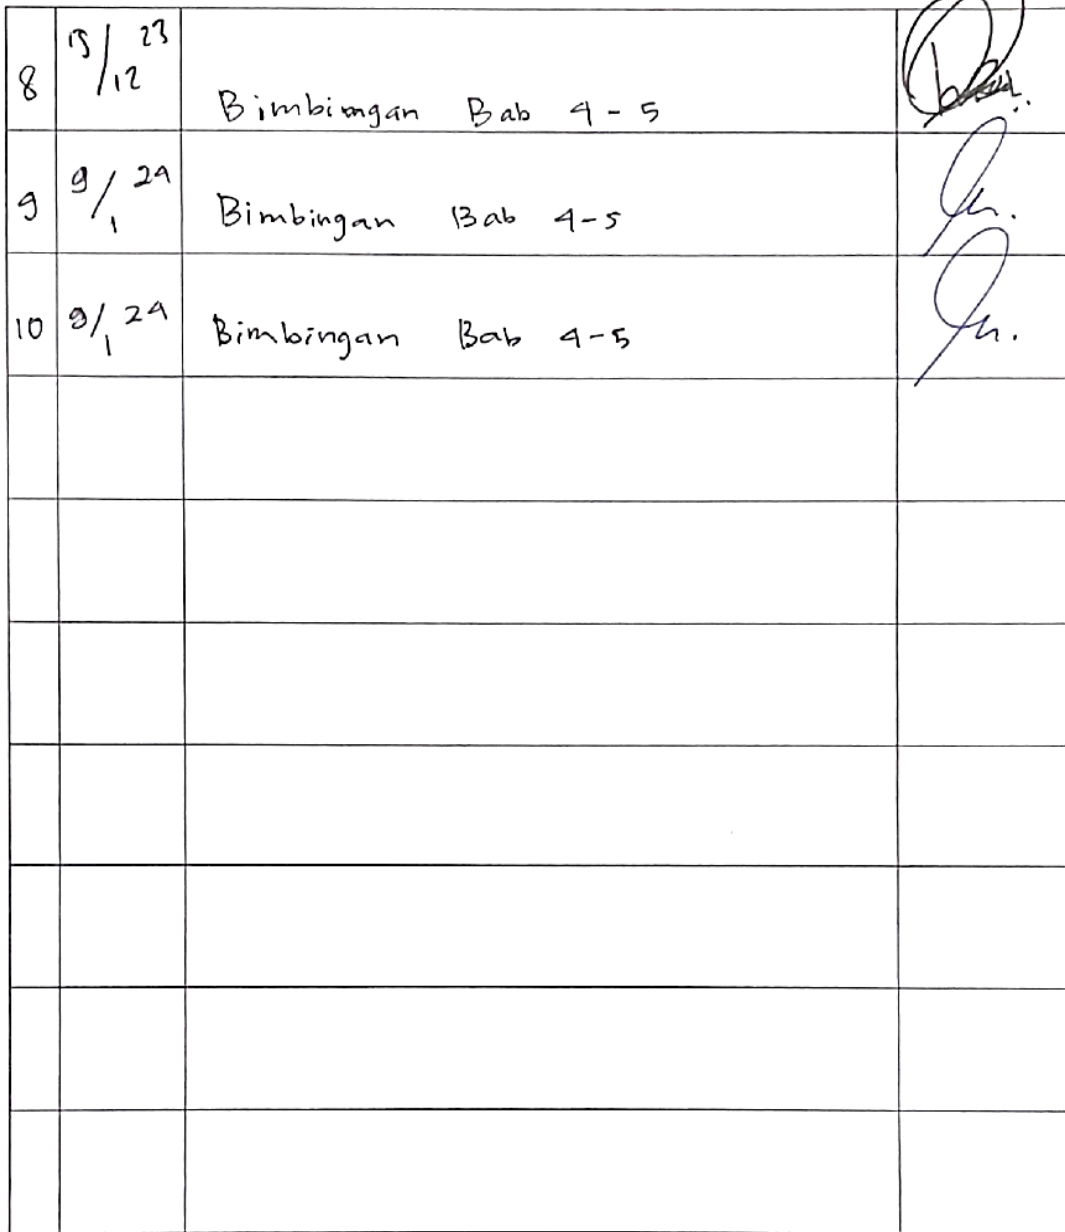 8 13/12 23 Bimbimgan Bab 4 - 5
9 9/1 24 Bimbingan Bab 4-5
10 9/1 24 Bimbingan Bab 4-5